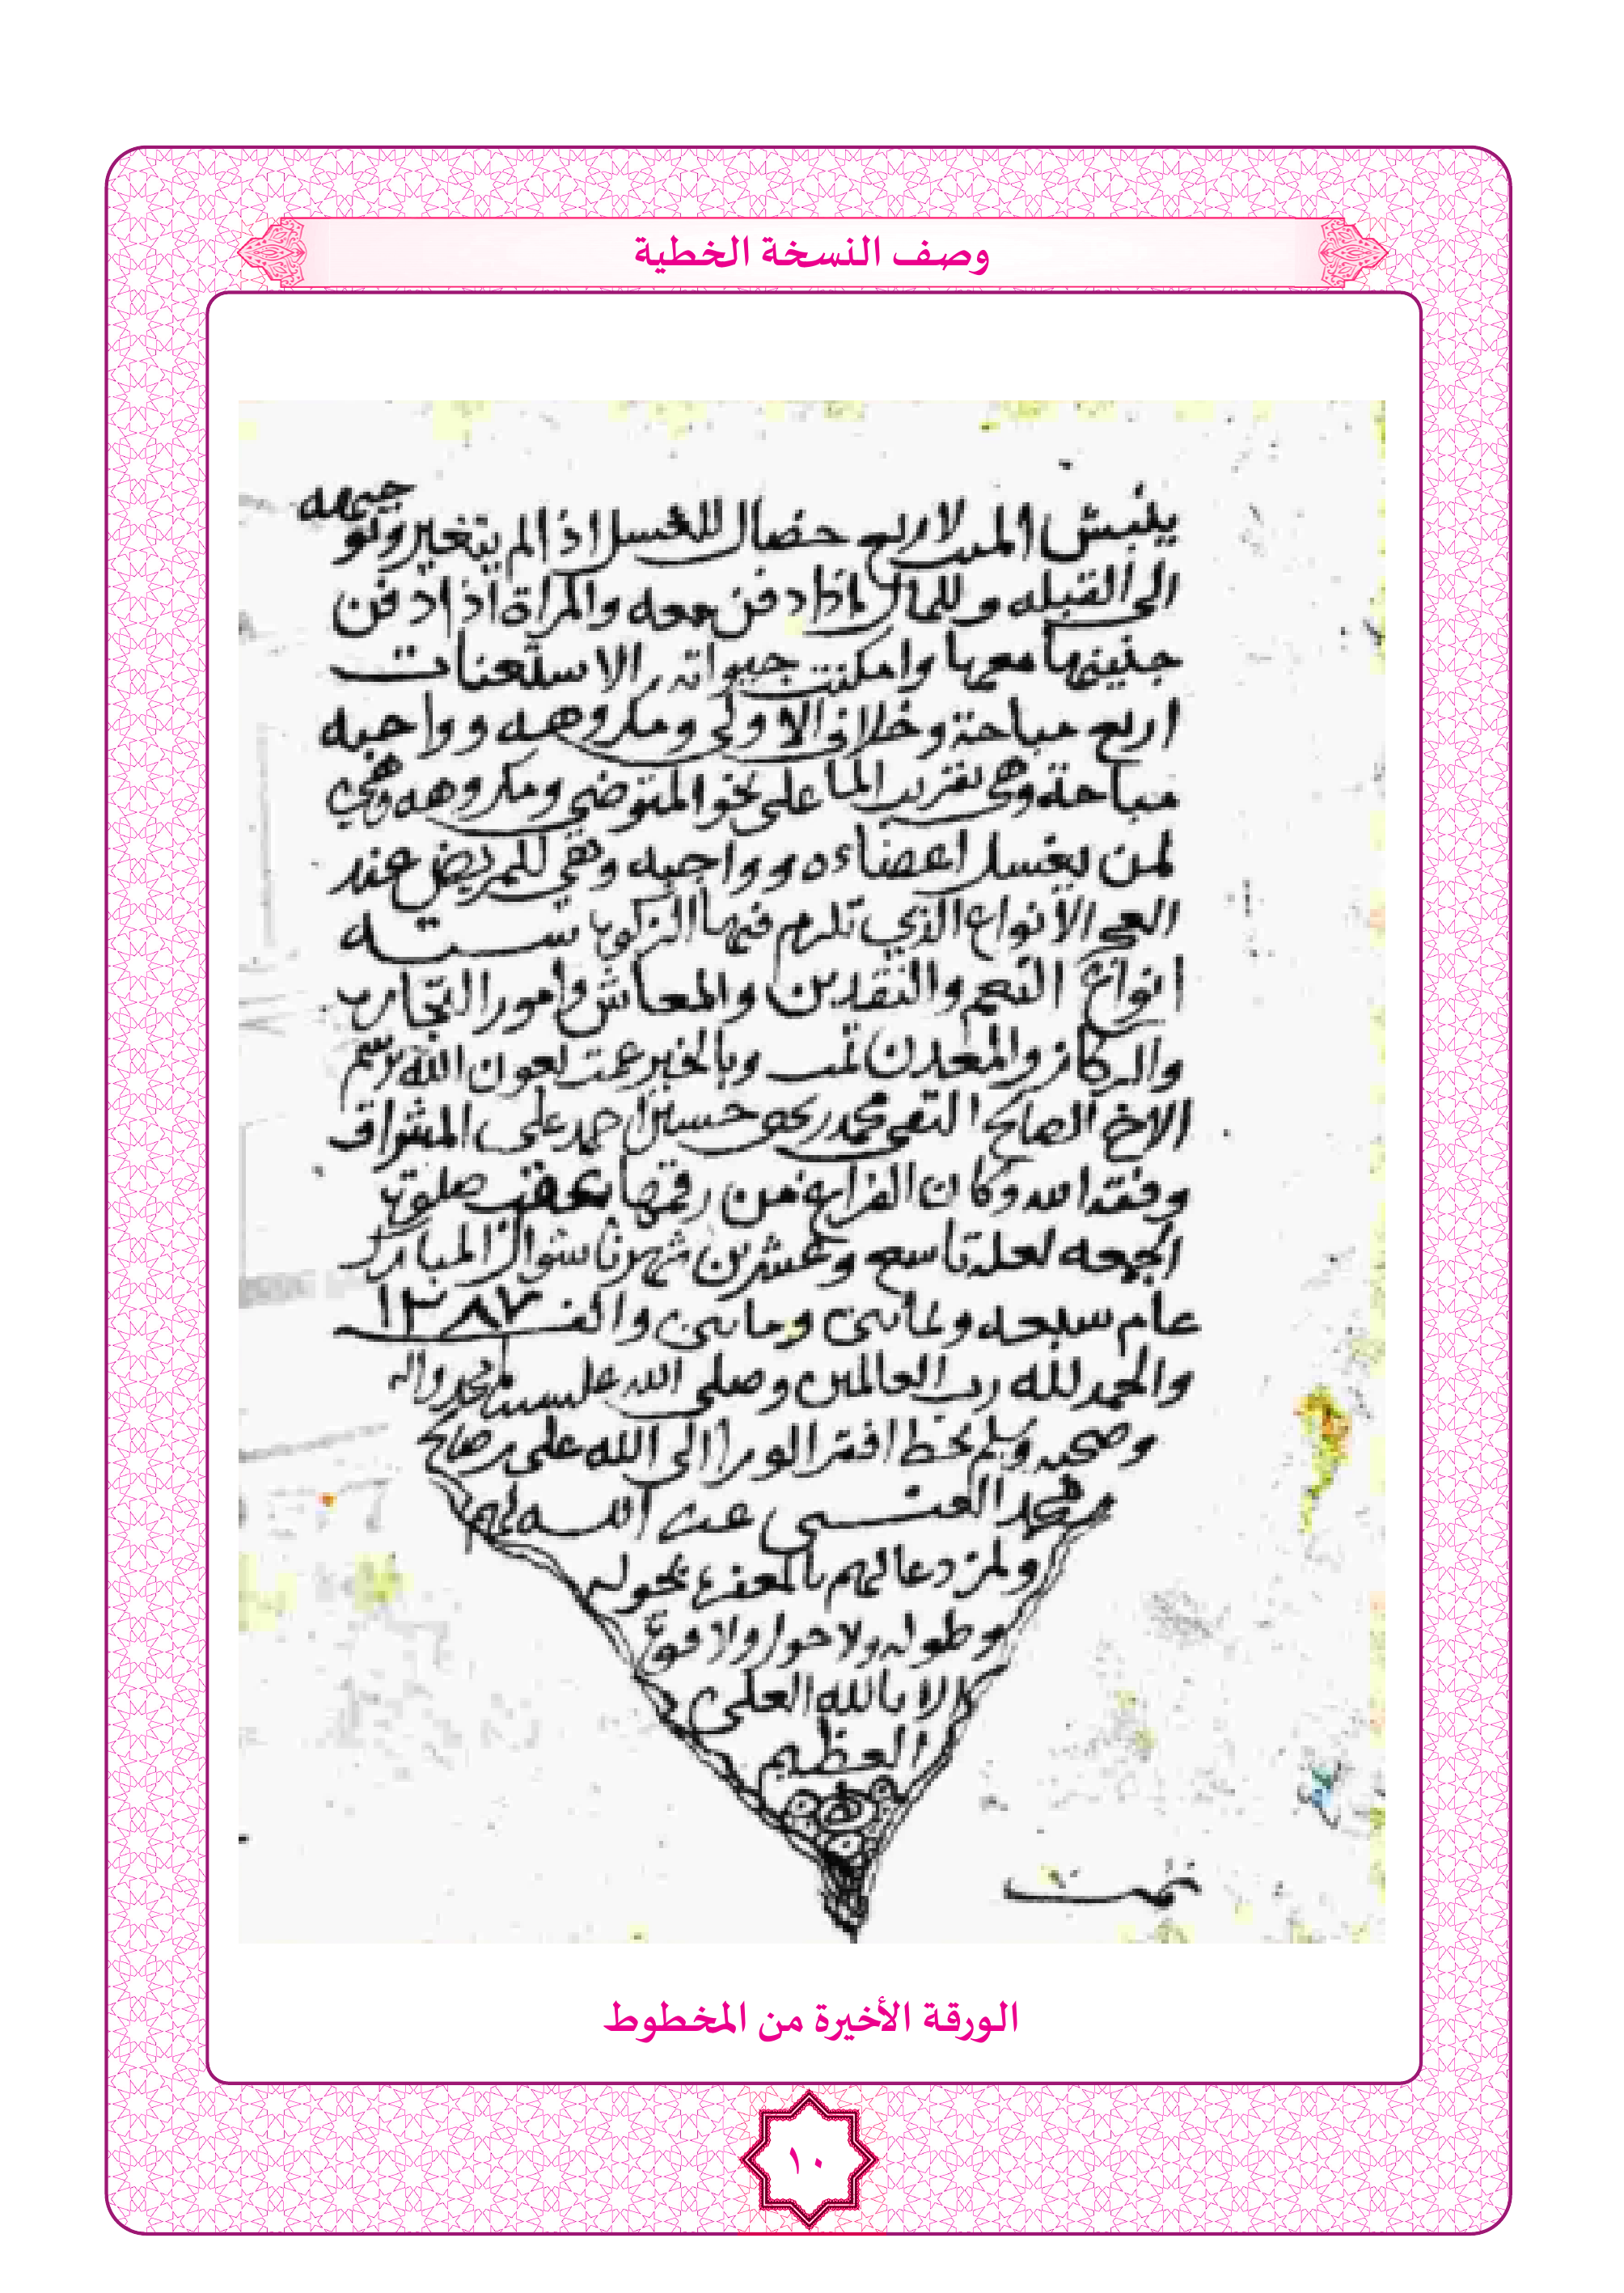 وصف النسخة الخطية
ينبش الميت لاربع خصال للغسل اذا لم يتغير ولتوجيهه
الى القبله وللمال اذا دفن معه والمراة اذا دفن
جنينها معها وامكنت حيواته الاستعنات
اربع مباحة وخلاف الاولى ومكروهه وواجبه
مباحة وهي تقريب الما على نحو المتوضي ومكروهه وهي
لمن يغسل اعضاءه وواجبه وهي للمريض عند
العجز الانواع الذي تلزم فيها الزكوة ستـه
انواع النعم والنقدين والمعاش وامور التجارب
والركاز والمعدن تمت وبالخير عمت بعون الله برسم
الاخ الصالح التقي محمد حسين احمد علي
وفقه الله وكان الفراغ من رقمها بعقب صلوة
الجمعه لعله تاسع وعشرين شهرنا شوال المبارك
عام سبعه وثمانين وماتين والف ١٢٨٧
والحمد لله رب العالمين وصلى الله على سيدنا محمد واله
وصحبه وسلم بخط افقر الورا الى الله علي صالح
محمد العنسي عفى الله لهم
ولمن دعا لهم بالمغفرة بحوله
وطوله ولا حول ولا قوة
الا بالله العلي
العظيم
تمت
الورقة الأخيرة من المخطوط
١٠